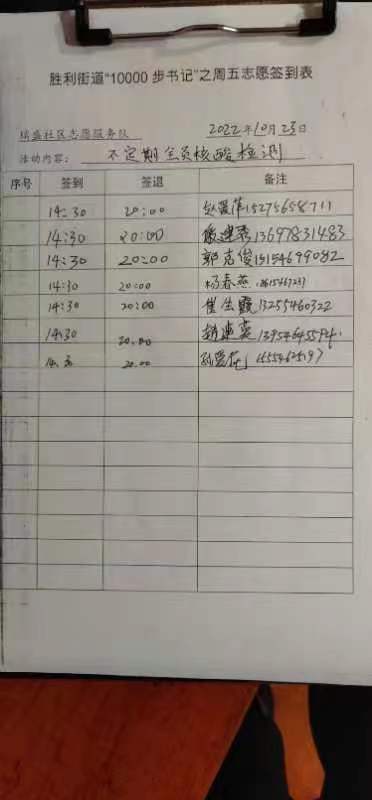 胜利街道“10000 步书记”之周五志愿签到表
瑞盛社区志愿服务队 2022年10月23日
活动内容： 不定期全员核酸检测
序号 签到 签退 备注
14:30 20:00 15275658711
14:30 20:00 13697831483
14:30 20:00 郭志俊15154699082
14:30 20:00 杨春燕
14:30 20:00 崔 13255460322
14:30 20:00
14:30 20:00